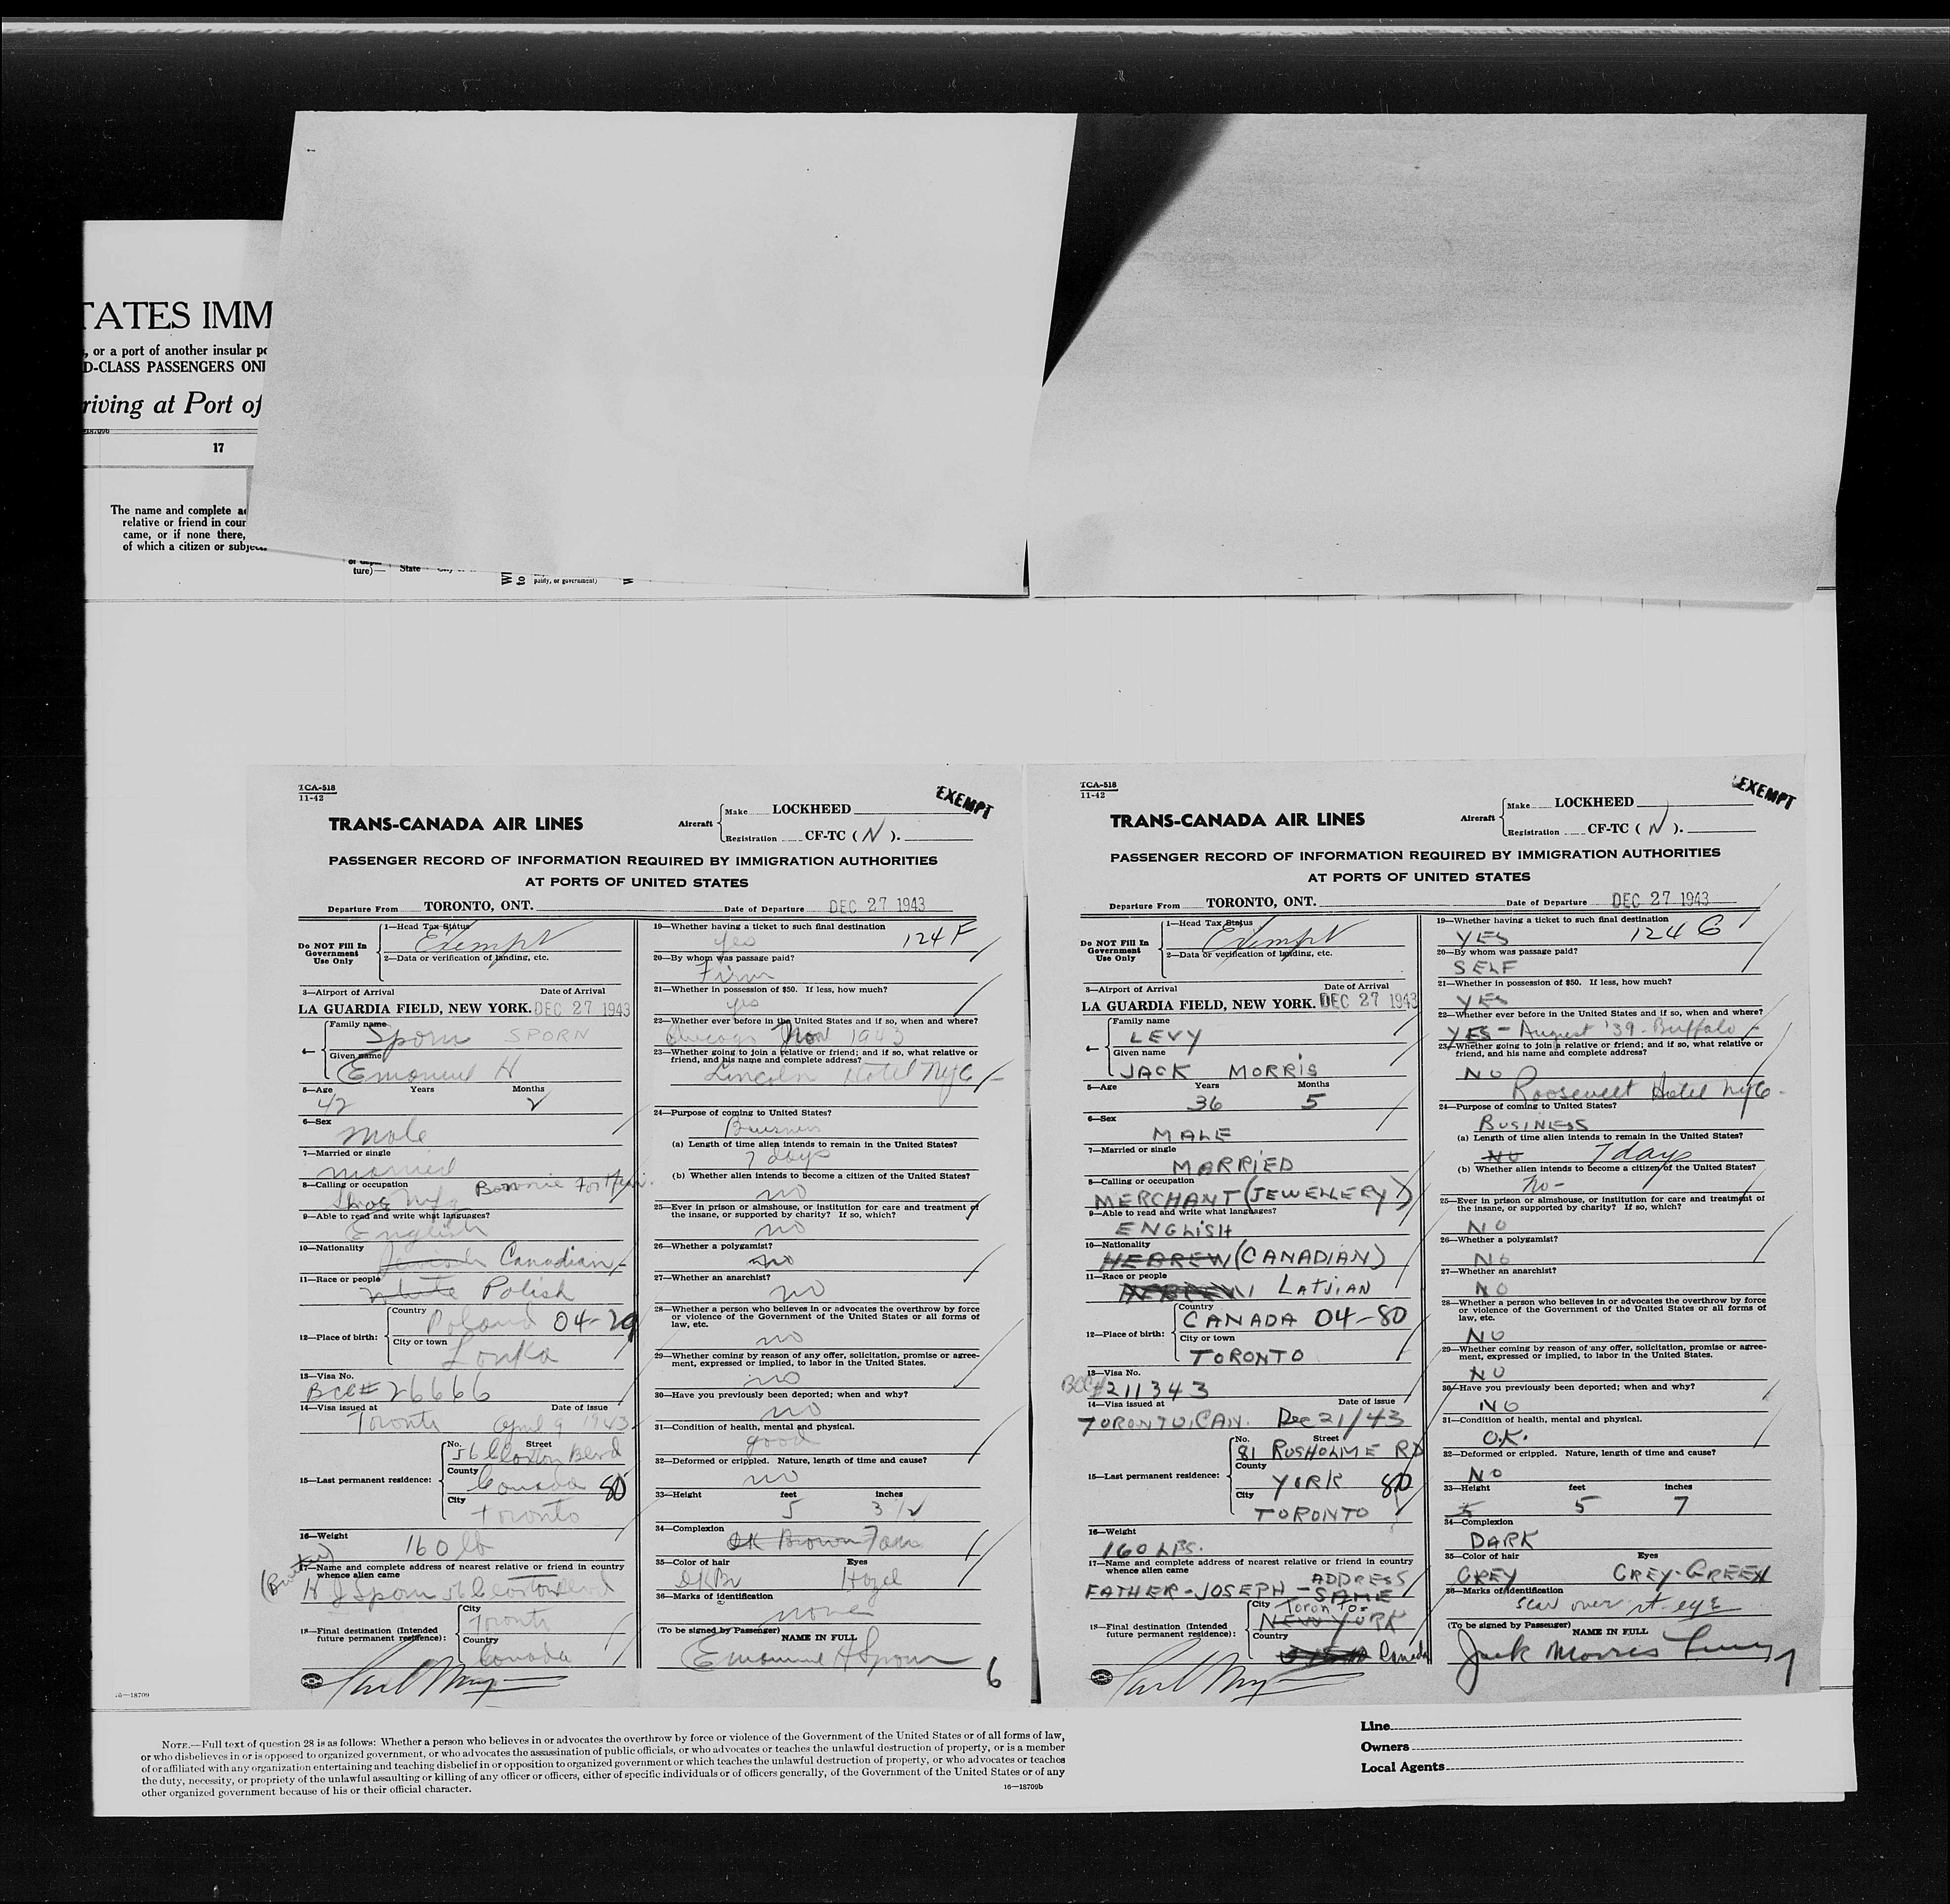 TATES IMM
, or a port of another insular po
D-CLASS PASSENGERS ONI
riving at Port of
17
The name and complete ad
relative or friend in cour
came, or if none there,
of which a citizen or subject
ture)—
State
to
pality, or government)
TCA-518
11-42
EXEMPT
TRANS-CANADA AIR LINES
Aircraft
Make LOCKHEED
Registration CF-TC (N).
PASSENGER RECORD OF INFORMATION REQUIRED BY IMMIGRATION AUTHORITIES
AT PORTS OF UNITED STATES
Departure From TORONTO, ONT. Date of Departure DEC 27 1943
Do NOT Fill In
Government
Use Only
1—Head Tax Status
Exempt
2—Data or verification of landing, etc.
3—Airport of Arrival Date of Arrival
LA GUARDIA FIELD, NEW YORK. DEC 27 1943
4— Family name
Sporn SPORN
Given name
Emanuel H
5—Age Years Months
42 2
6—Sex
Male
7—Married or single
married
8—Calling or occupation
Shoe Mfg Bonnie
9—Able to read and write what languages?
English
10—Nationality
Canadian
11—Race or people
white Polish
12—Place of birth:
Country
Poland 04-29
City or town
Lonka
13—Visa No.
BCC# 26666
14—Visa issued at Date of issue
Toronto April 9 1943
15—Last permanent residence:
No. Street
56 Claxton Blvd
County
Canada 80
City
Toronto
16—Weight
160 lb
17—Name and complete address of nearest relative or friend in country
whence alien came
(Brother)
H J Sporn 56 Claxton Blvd
18—Final destination (Intended
future permanent residence):
City
Toronto
Country
Canada
19—Whether having a ticket to such final destination
yes 124 F
20—By whom was passage paid?
Firm
21—Whether in possession of $50. If less, how much?
yes
22—Whether ever before in the United States and if so, when and where?
Chicago Nov 1943
23—Whether going to join a relative or friend; and if so, what relative or
friend, and his name and complete address?
Lincoln Hotel NYC
24—Purpose of coming to United States?
Business
(a) Length of time alien intends to remain in the United States?
7 days
(b) Whether alien intends to become a citizen of the United States?
no
25—Ever in prison or almshouse, or institution for care and treatment of
the insane, or supported by charity? If so, which?
no
26—Whether a polygamist?
no
27—Whether an anarchist?
no
28—Whether a person who believes in or advocates the overthrow by force
or violence of the Government of the United States or all forms of
law, etc.
no
29—Whether coming by reason of any offer, solicitation, promise or agree-
ment, expressed or implied, to labor in the United States.
no
30—Have you previously been deported; when and why?
no
31—Condition of health, mental and physical.
good
32—Deformed or crippled. Nature, length of time and cause?
no
33—Height feet inches
5 3 1/2
34—Complexion
DK Brown Fair
35—Color of hair Eyes
DKBr Hazel
36—Marks of identification
none
(To be signed by Passenger)
NAME IN FULL
Emanuel H Sporn
6
TCA-518
11-42
EXEMPT
TRANS-CANADA AIR LINES
Aircraft
Make LOCKHEED
Registration CF-TC (N).
PASSENGER RECORD OF INFORMATION REQUIRED BY IMMIGRATION AUTHORITIES
AT PORTS OF UNITED STATES
Departure From TORONTO, ONT. Date of Departure DEC 27 1943
Do NOT Fill In
Government
Use Only
1—Head Tax Status
Exempt
2—Data or verification of landing, etc.
3—Airport of Arrival Date of Arrival
LA GUARDIA FIELD, NEW YORK. DEC 27 1943
4— Family name
LEVY
Given name
JACK MORRIS
5—Age Years Months
36 5
6—Sex
MALE
7—Married or single
MARRIED
8—Calling or occupation
MERCHANT (JEWELLERY)
9—Able to read and write what languages?
ENGLISH
10—Nationality
HEBREW (CANADIAN)
11—Race or people
HEBREW LATVIAN
12—Place of birth:
Country
CANADA 04-80
City or town
TORONTO
13—Visa No.
BCC# 211343
14—Visa issued at Date of issue
TORONTO, CAN. Dec 21/43
15—Last permanent residence:
No. Street
81 RUSHOLME RD
County
YORK 80
City
TORONTO
16—Weight
160 LBS.
17—Name and complete address of nearest relative or friend in country
whence alien came
ADDRESS
FATHER-JOSEPH-SAME
18—Final destination (Intended
future permanent residence):
City
Toronto-
NEW YORK
Country
Canada
19—Whether having a ticket to such final destination
YES 124 G
20—By whom was passage paid?
SELF
21—Whether in possession of $50. If less, how much?
YES
22—Whether ever before in the United States and if so, when and where?
YES - August '39 - Buffalo
23—Whether going to join a relative or friend; and if so, what relative or
friend, and his name and complete address?
NO
Roosevelt Hotel NYC -
24—Purpose of coming to United States?
BUSINESS
(a) Length of time alien intends to remain in the United States?
NO 7 days
(b) Whether alien intends to become a citizen of the United States?
no-
25—Ever in prison or almshouse, or institution for care and treatment of
the insane, or supported by charity? If so, which?
NO
26—Whether a polygamist?
NO
27—Whether an anarchist?
NO
28—Whether a person who believes in or advocates the overthrow by force
or violence of the Government of the United States or all forms of
law, etc.
NO
29—Whether coming by reason of any offer, solicitation, promise or agree-
ment, expressed or implied, to labor in the United States.
NO
30—Have you previously been deported; when and why?
NO
31—Condition of health, mental and physical.
O.K.
32—Deformed or crippled. Nature, length of time and cause?
NO
33—Height feet inches
5 5 7
34—Complexion
DARK
35—Color of hair Eyes
GREY GREY-GREEN
36—Marks of identification
scar over rt-eye
(To be signed by Passenger)
NAME IN FULL
Jack Morris Levy
7
16—18709
NOTE.—Full text of question 28 is as follows: Whether a person who believes in or advocates the overthrow by force or violence of the Government of the United States or of all forms of law,
or who disbelieves in or is opposed to organized government, or who advocates the assassination of public officials, or who advocates or teaches the unlawful destruction of property, or is a member
of or affiliated with any organization entertaining and teaching disbelief in or opposition to organized government or which teaches the unlawful destruction of property, or who advocates or teaches
the duty, necessity, or propriety of the unlawful assaulting or killing of any officer or officers, either of specific individuals or of officers generally, of the Government of the United States or of any
other organized government because of his or their official character.
16—18709b
Line
Owners
Local Agents